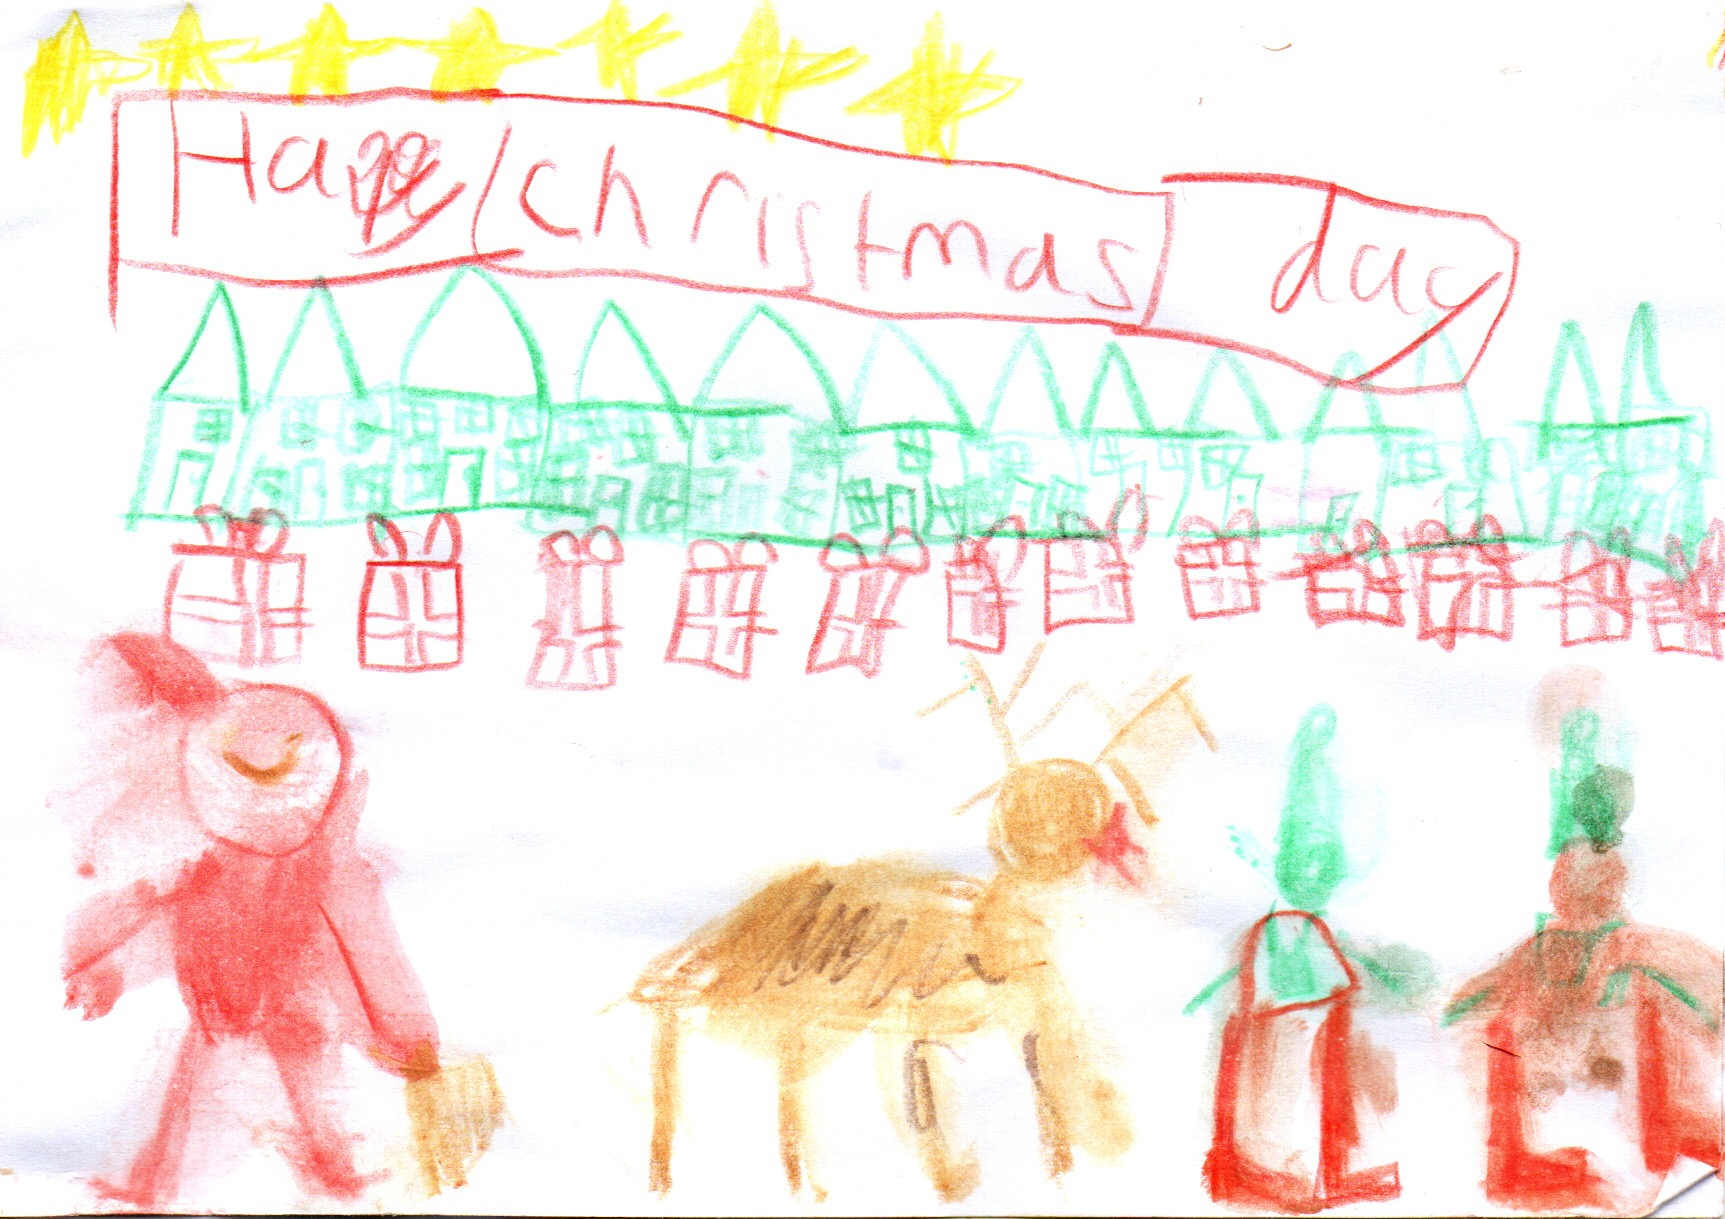 Happy christmas day